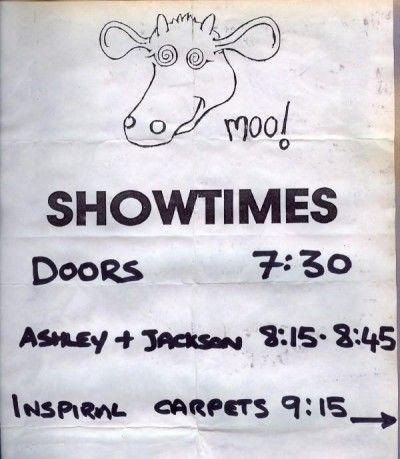 moo!
SHOWTIMES
DOORS 7:30
ASHLEY + JACKSON 8:15 - 8:45
INSPIRAL CARPETS 9:15 →